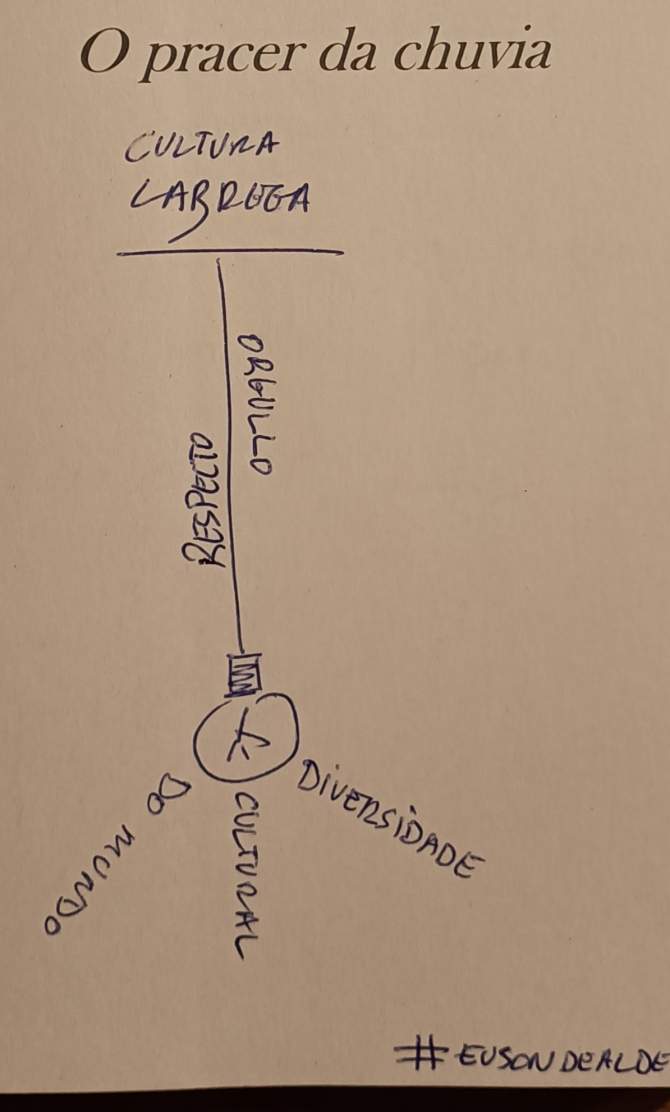 O pracer da chuvia
CULTURA
LABREGA
ORGULLO
RESPECTO
DIVERSIDADE
CULTURAL
DO MUNDO
#EUSONDEALDE